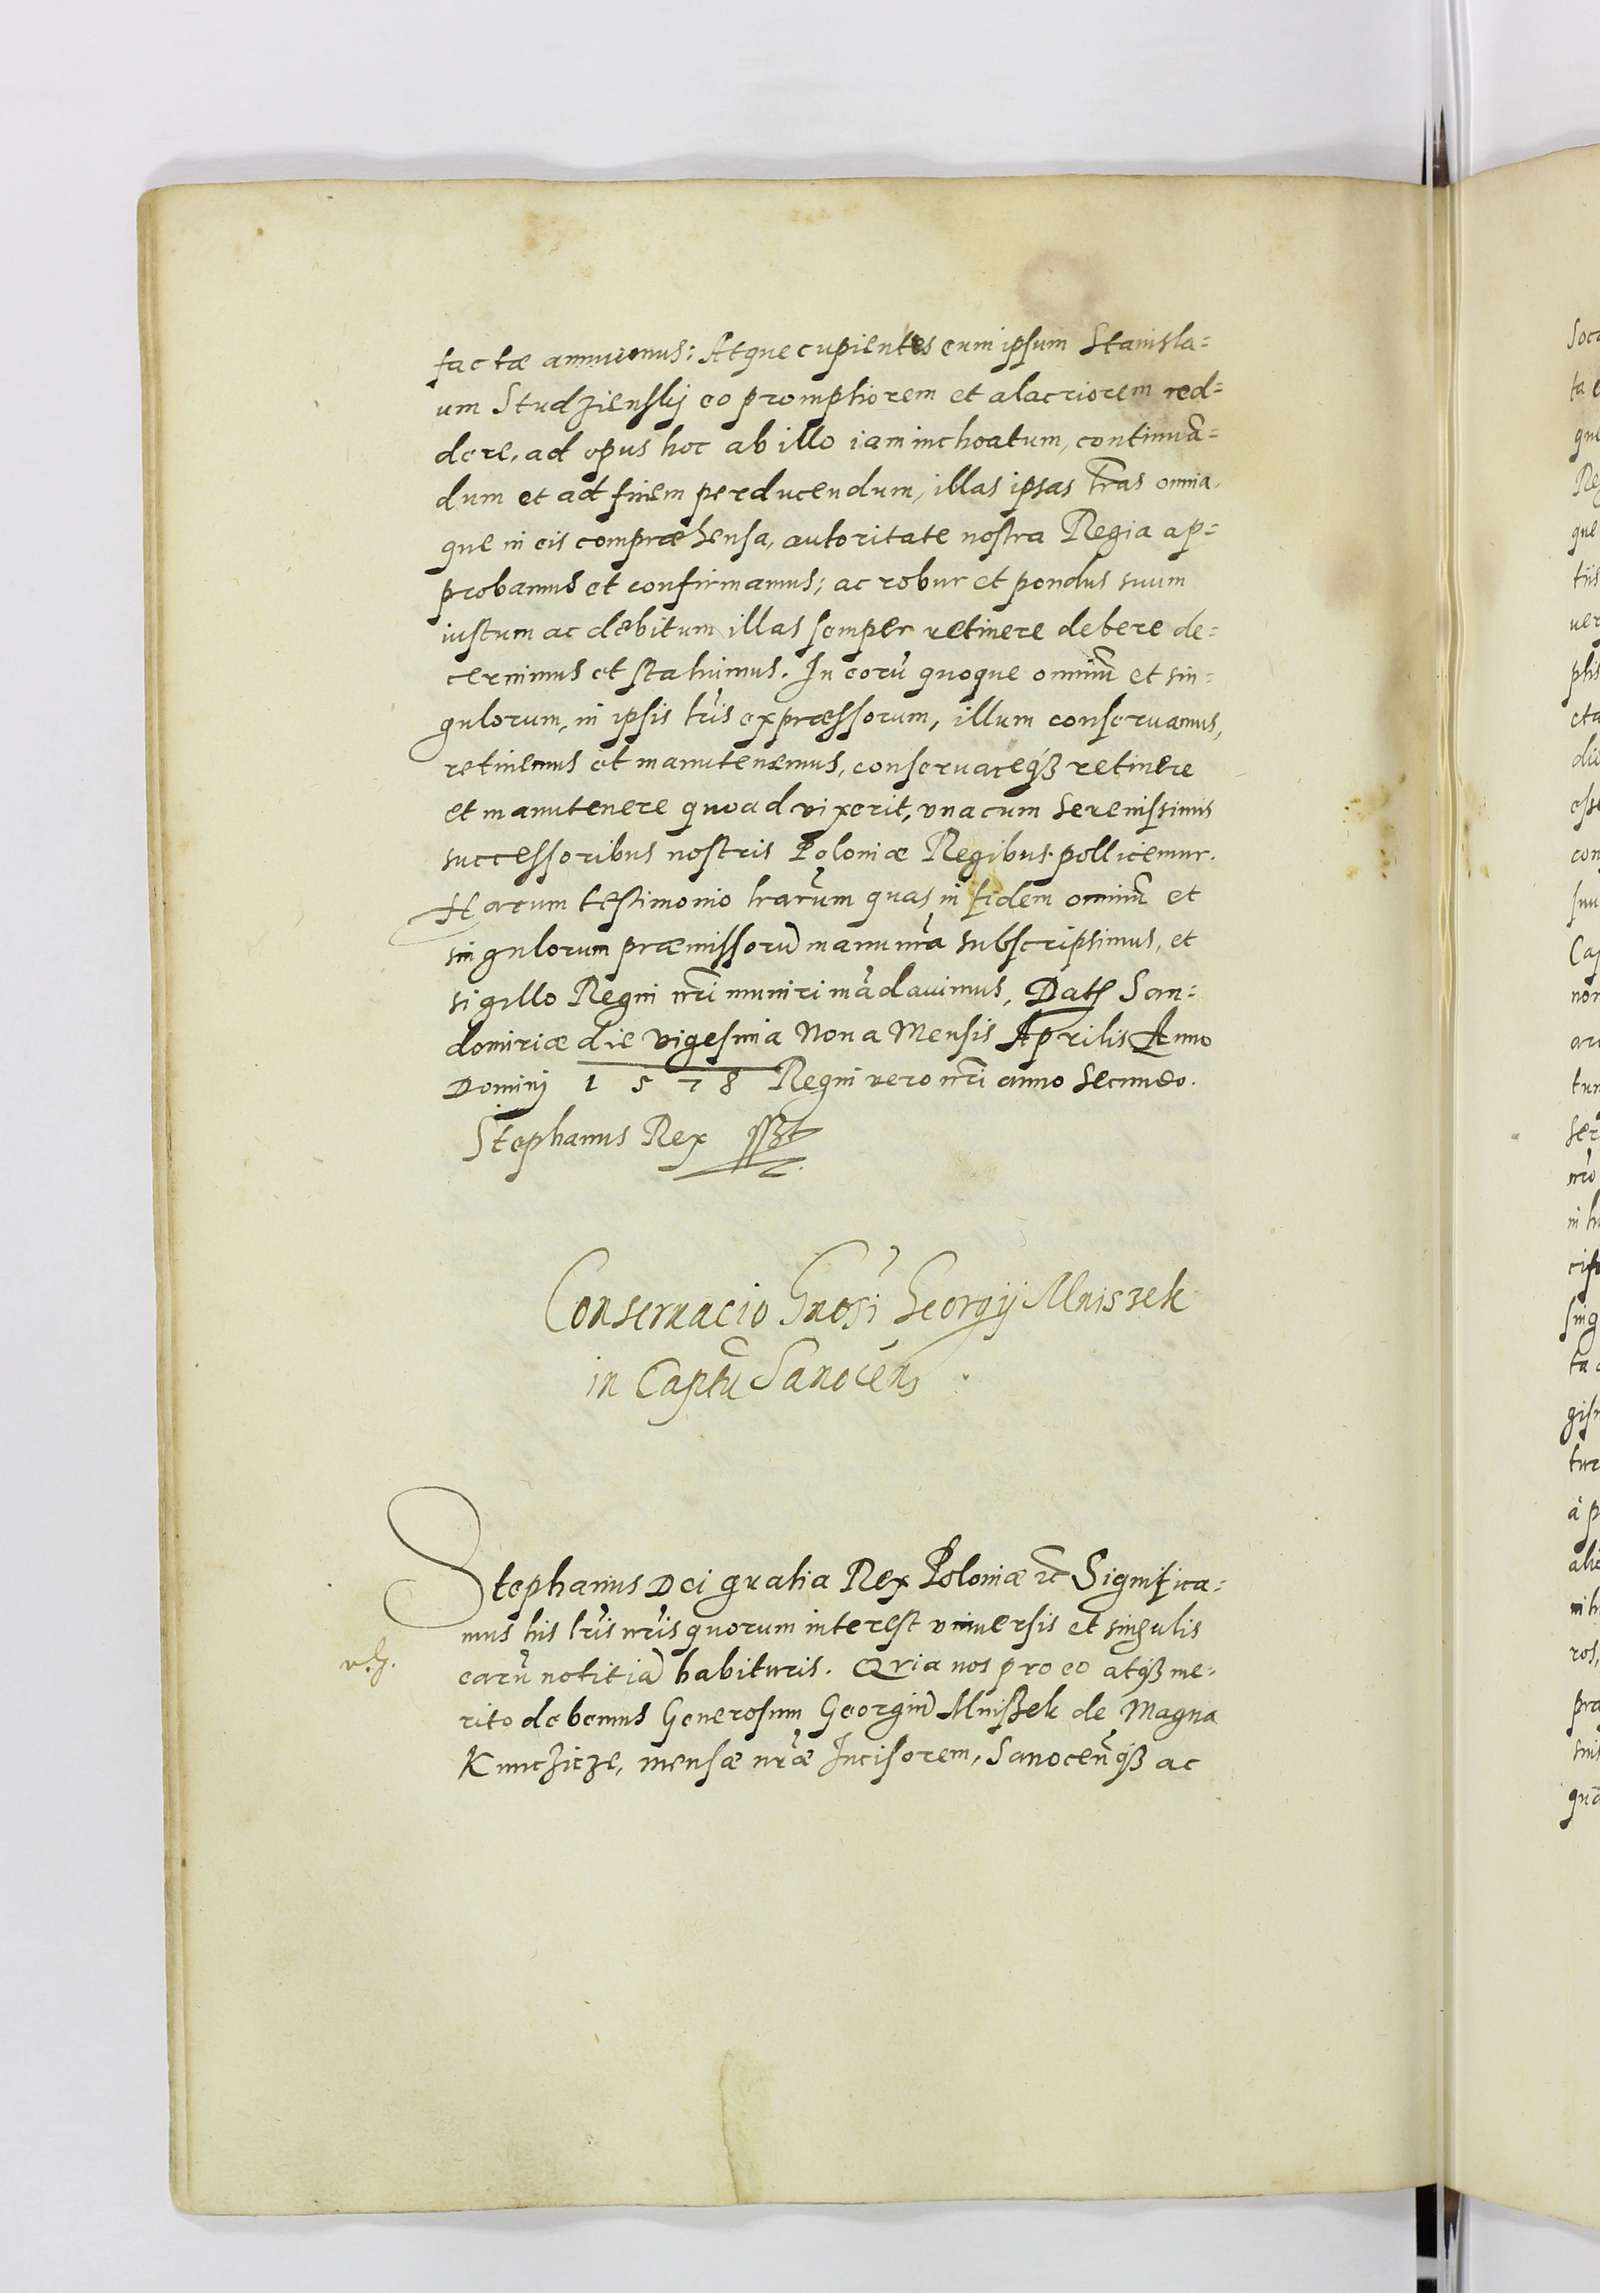 factæ annuimus: Atque cupientes eum ipsum Stanisla=
um Studzienskij eo promptiorem et alacriorem red=
dere, ad opus hoc ab illo iam inchoatum, continuã=
dum et ad finem perducendum, illas ipsas lr̃as omnia
que in eis compræhensa, autoritate nostra Regia ap=
probamus et confirmamus; ac robur et pondus suum
iustum ac debitum illas semper retinere debere de=
cernimus et statuimus. In eorũ quoque omniũ et sin=
gulorum, in ipsis lr̃is expressorum, illum conseruamus,
retinemus et manutenemus, conseruareq3 retinere
et manutenere quoad vixerit, vna cum Serenissimis
successoribus nostris Poloniæ Regibus pollicemur.
Harum testimonio lrarũm quas in fidem omniũ et
singulorum præmissorũ manu nr̃a subscripsimus, et
sigillo Regni nr̃i muniri mãdauimus, Dat San=
domiriæ die vigesima Nona Mensis Aprilis Anno
Dominj 1578 Regni vero nr̃i anno Secundo.
Stephanus Rex sst
Conseruacio Gnosi Georgij Mniszek
in Captũ Sanocen
Stephanus Dei gratia Rex Poloniæ etc Significa=
mus his lr̃is nr̃is quorum interest vniuersis et singulis
earũ notitiã habituris. Quia nos pro eo atq3 me=
rito debemus Generosum Georgiũ Mnißek de Magna
Kunczicze, mensæ nr̃æ Incisorem, Sanocen̄q3 ac